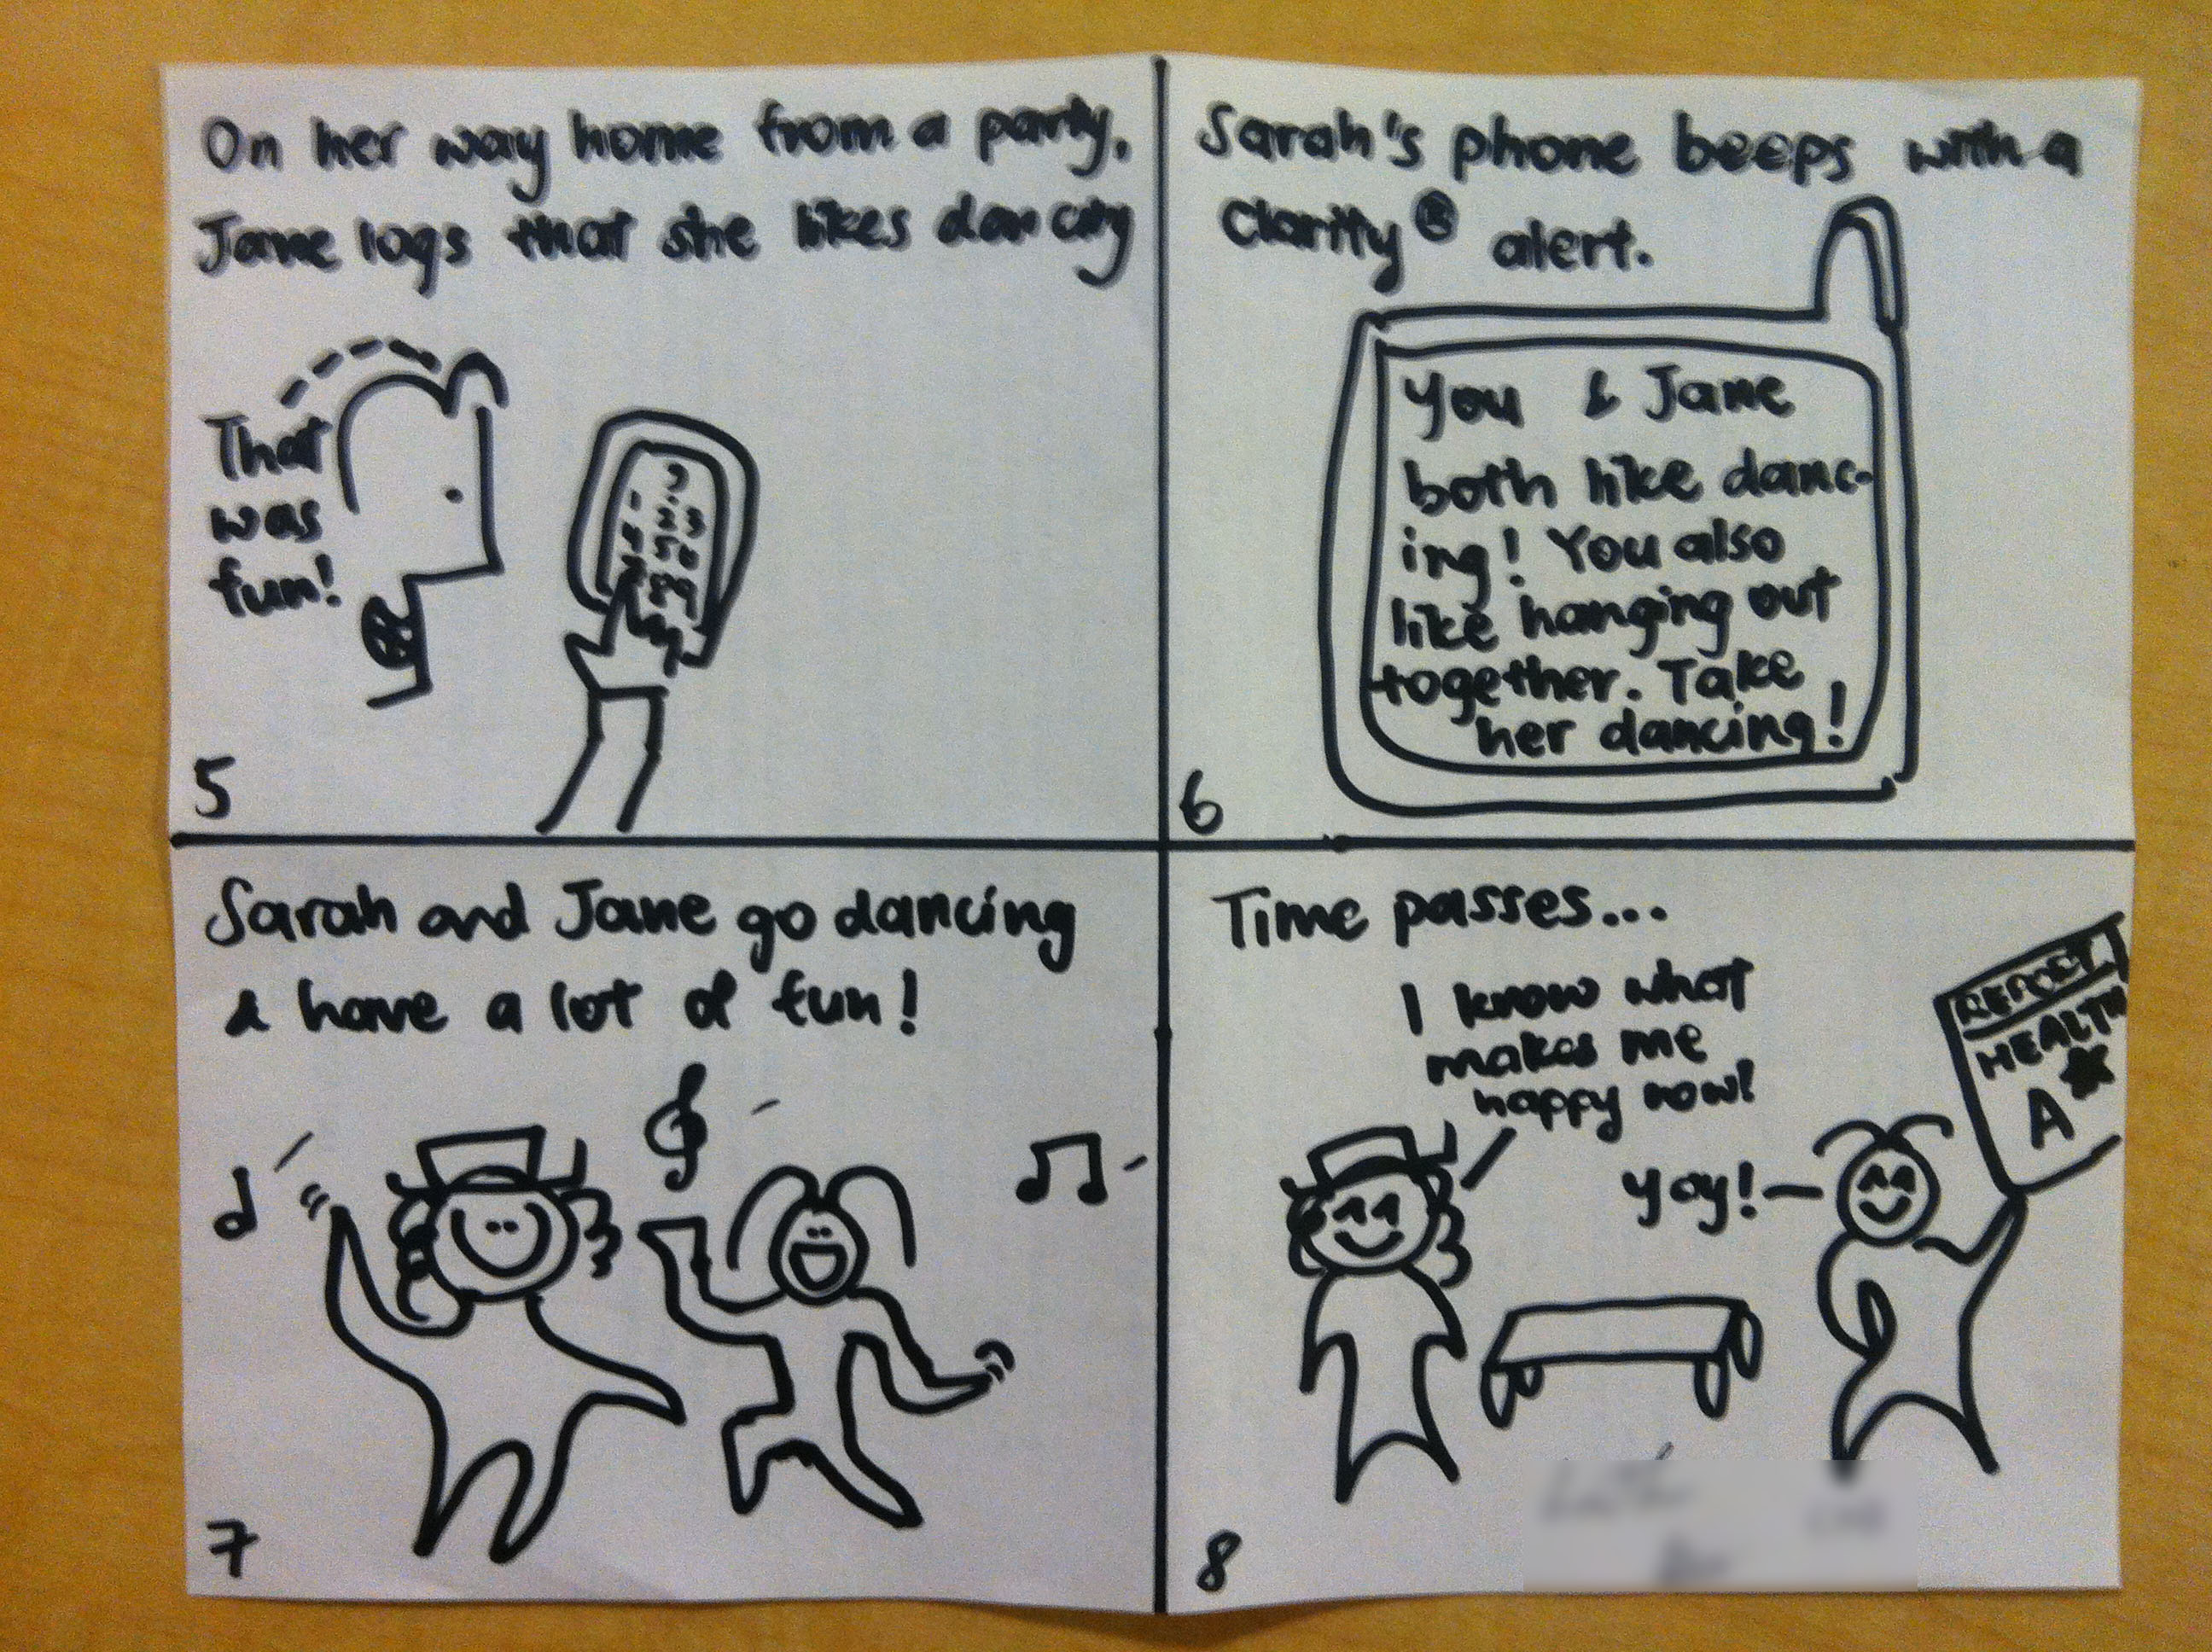 On her way home from a party,
Jane logs that she likes dancing
That
was
fun!
5
Sarah's phone beeps with a
Clarity® alert.
You & Jane
both like danc-
ing! You also
like hanging out
together. Take
her dancing!
6
Sarah and Jane go dancing
& have a lot of fun!
7
Time passes...
I know what
makes me
happy now!
Yay!
REPORT
HEALTH
A
8